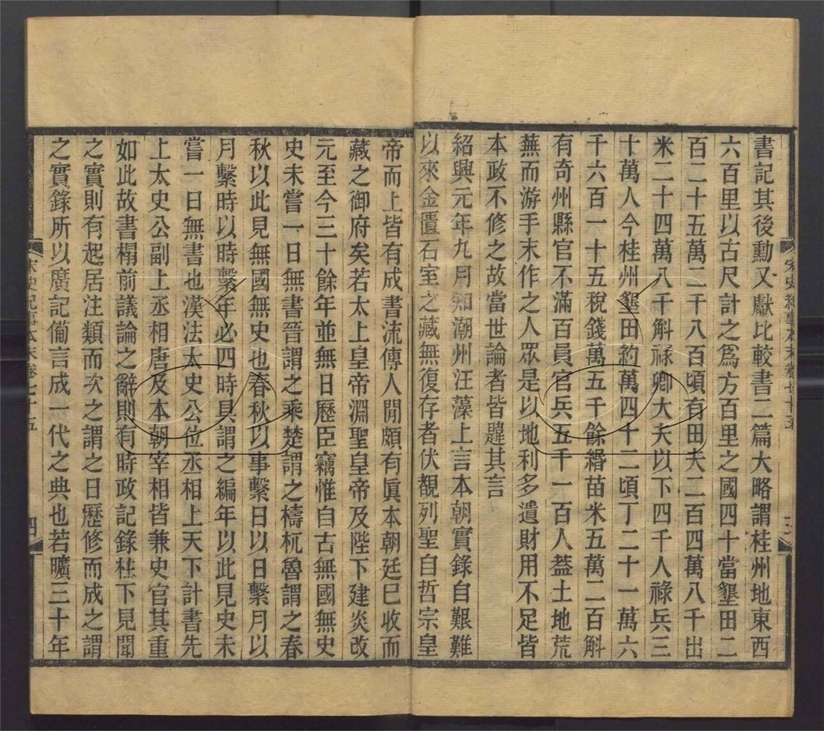 書記其後勳又獻比較書二篇大略謂桂州地東西
六百里以古尺計之爲方百里之國四十當墾田二
百二十五萬二千八百頃有田夫二百四萬八千出
米二十四萬八千斛祿卿大夫以下四千人祿兵三
十萬人今桂州墾田約萬四十二頃丁二十一萬六
千六百一十五稅錢萬五千餘緡苗米五萬二百斛
有奇州縣官不滿百員官兵五千一百人蓋土地荒
蕪而游手末作之人眾是以地利多遺財用不足皆
本政不修之故當世論者皆韙其言
紹興元年九月知潮州汪藻上言本朝實錄自艱難
以來金匱石室之藏無復存者伏覩列聖自哲宗皇
宋史紀事本末卷七十五
三
帝而上皆有成書流傳人閒頗有眞本朝廷已收而
藏之御府矣若太上皇帝淵聖皇帝及陛下建炎改
元至今三十餘年並無日歷臣竊惟自古無國無史
史未嘗一日無書晉謂之乘楚謂之檮杌魯謂之春
秋以此見無國無史也春秋以事繫日以日繫月以
月繫時以時繫年必四時具謂之編年以此見史未
嘗一日無書也漢法太史公位丞相上天下計書先
上太史公副上丞相唐及本朝宰相皆兼史官其重
如此故書榻前議論之辭則有時政記錄柱下見聞
之實則有起居注類而次之謂之日歷修而成之謂
之實錄所以廣記備言成一代之典也若曠三十年
宋史紀事本末卷七十五
四